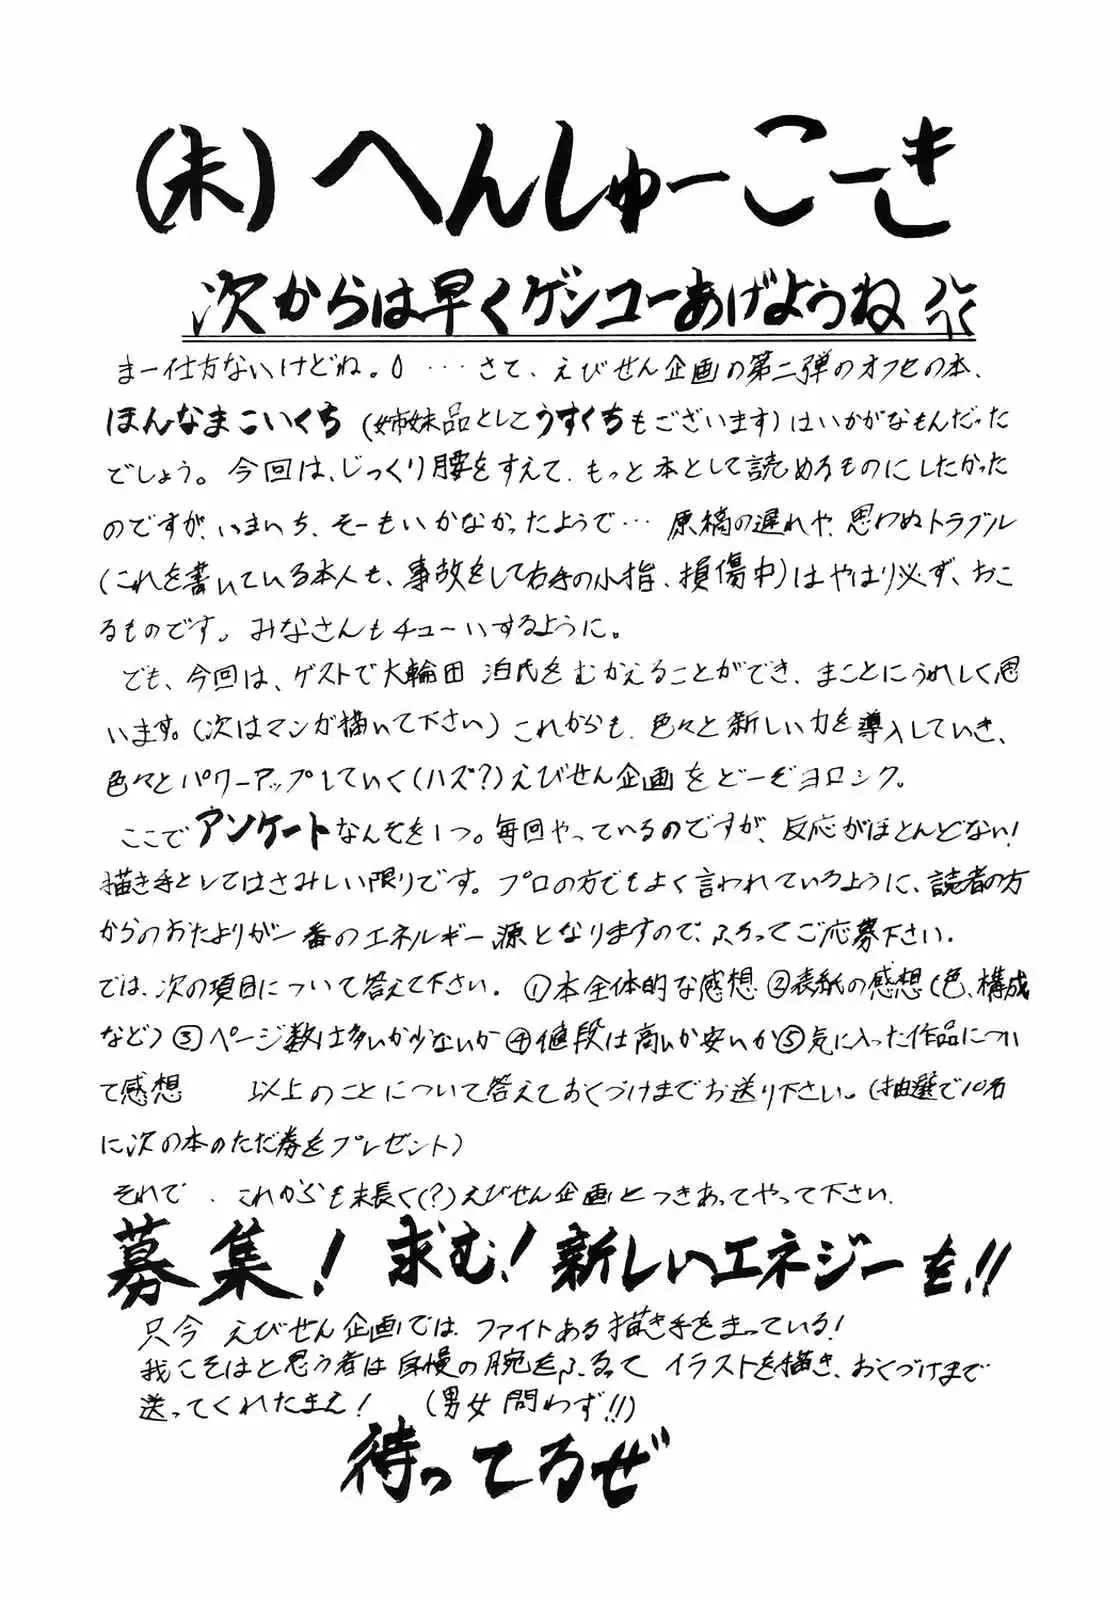 (未)へんしゅーこーき
次からは早くゲンコーあげようね
まー仕方ないけどね。 … さて、えびせん企画の第二弾のオフセの本、
ほんなまこいくち(姉妹品としてうすくちもございます)はいかがなもんだった
でしょう。今回は、じっくり腰をすえて、もっと本として読めるものにしたかった
のですが、いまいち、そーもいかなかったようで… 原稿の遅れや、思わぬトラブル
(これを書いている本人も、事故をして右手の小指、損傷中)はやはり必ず、おこ
るものです。みなさんもチューいするように。
でも、今回は、ゲストで大輪田 泊氏をむかえることができ、まことにうれしく思
います。(次はマンガ描いて下さい)これからも、色々と新しい力を導入していき、
色々とパワーアップしていく(ハズ?)えびせん企画をどーぞヨロシク。
ここでアンケートなんぞを1つ。毎回やっているのですが、反応がほとんどない!
描き手としてはさみしい限りです。プロの方でもよく言われているように、読者の方
からのおたよりが一番のエネルギー源となりますので、ふるってご応募下さい.
では、次の項目について答えて下さい. ①本全体的な感想②表紙の感想(色、構成
など)③ページ数は多いか少ないか④値段は高いか安いか⑤気に入った作品につい
て感想 以上のことについて答えておくづけまでお送り下さい。(抽選で10名
に次の本のただ券をプレゼント)
それで、これからも末長く(?)えびせん企画とつきあってやって下さい.
募集! 求む! 新しいエネジーを!!
只今 えびせん企画では、ファイトある描き手をまっている!
我こそはと思う者は自慢の腕をふるって イラストを描き、おくづけまで
送ってくれたまえ! (男女問わず!!)
待ってるぜ